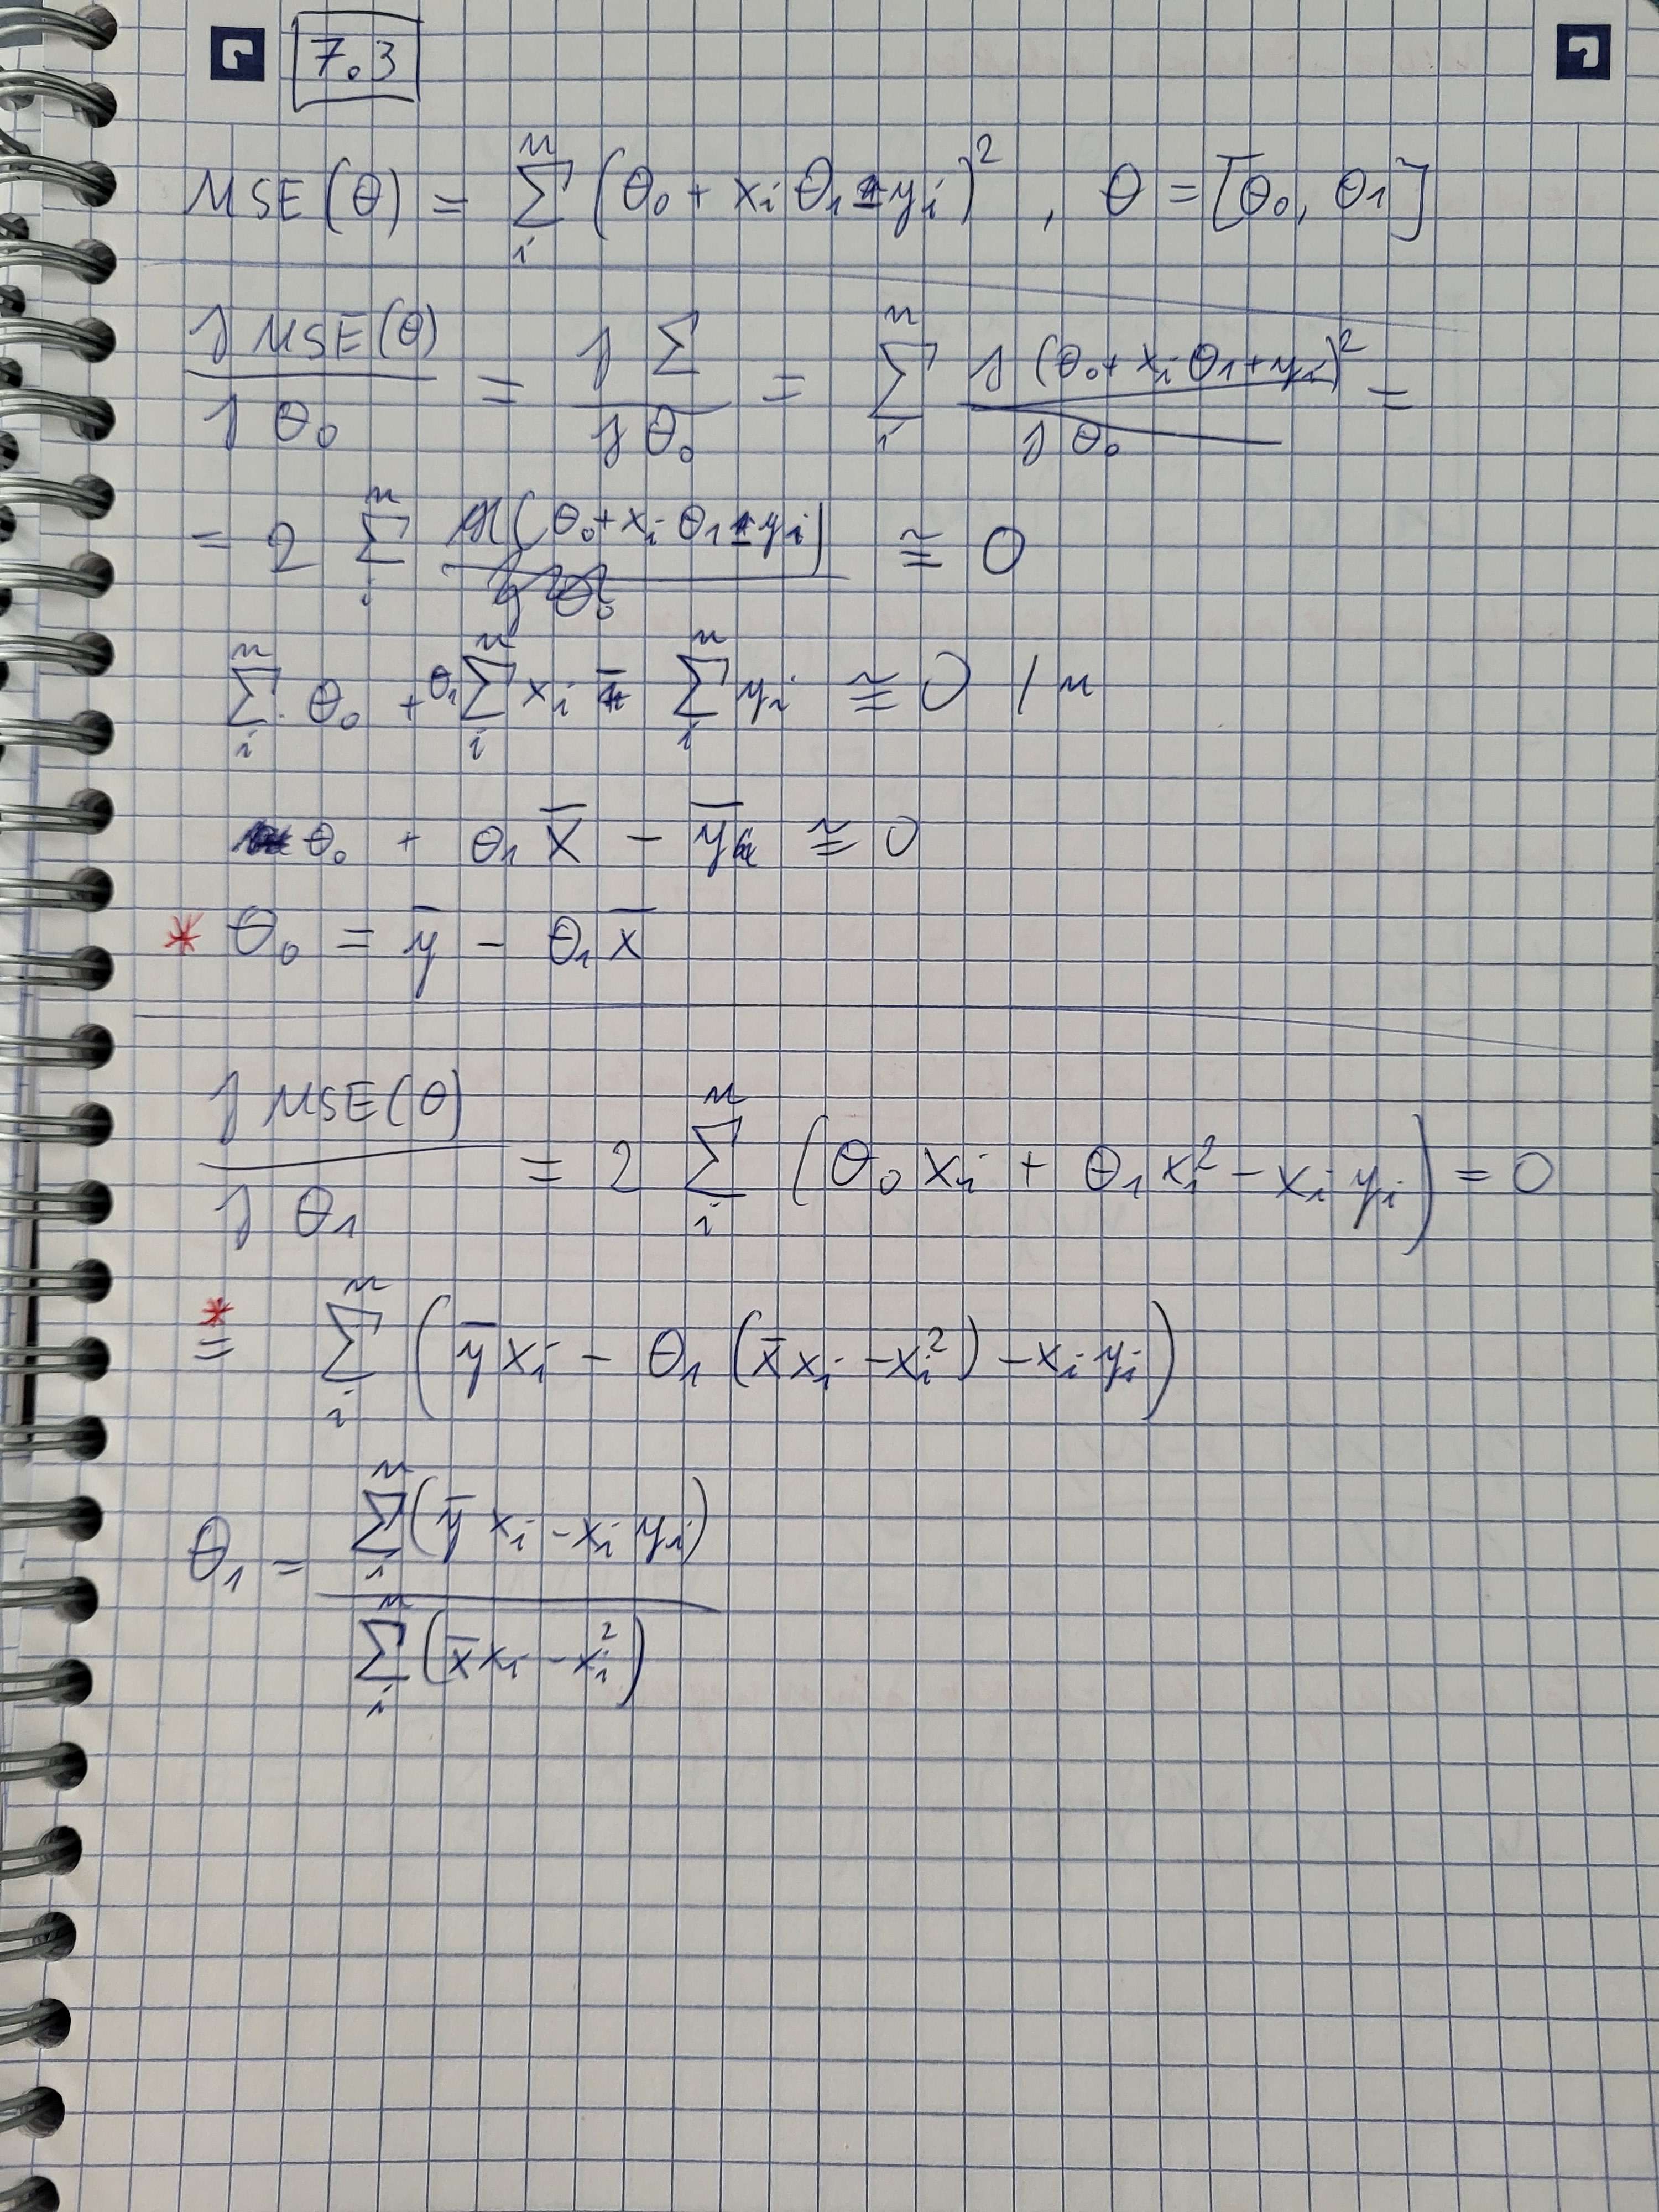 7.3
MSE(θ) = Σ_i^n (θ₀ + xᵢ θ₁ - yᵢ)² , θ = [θ₀, θ₁]
∂ MSE(θ) / ∂ θ₀ = ∂ Σ / ∂ θ₀ = Σ_i^n ∂ (θ₀ + xᵢ θ₁ + yᵢ)² / ∂ θ₀ =
= 2 Σ_i^n (θ₀ + xᵢ θ₁ - yᵢ) ≅ 0
Σ_i^n θ₀ + θ₁ Σ_i^n xᵢ - Σ_i^n yᵢ ≅ 0 / n
θ₀ + θ₁ x̄ - ȳ ≅ 0
* θ₀ = ȳ - θ₁ x̄
∂ MSE(θ) / ∂ θ₁ = 2 Σ_i^n (θ₀ xᵢ + θ₁ xᵢ² - xᵢ yᵢ) = 0
*= Σ_i^n (ȳ xᵢ - θ₁ (x̄ xᵢ - xᵢ²) - xᵢ yᵢ)
θ₁ = Σ_i^n (ȳ xᵢ - xᵢ yᵢ) / Σ_i^n (x̄ xᵢ - xᵢ²)